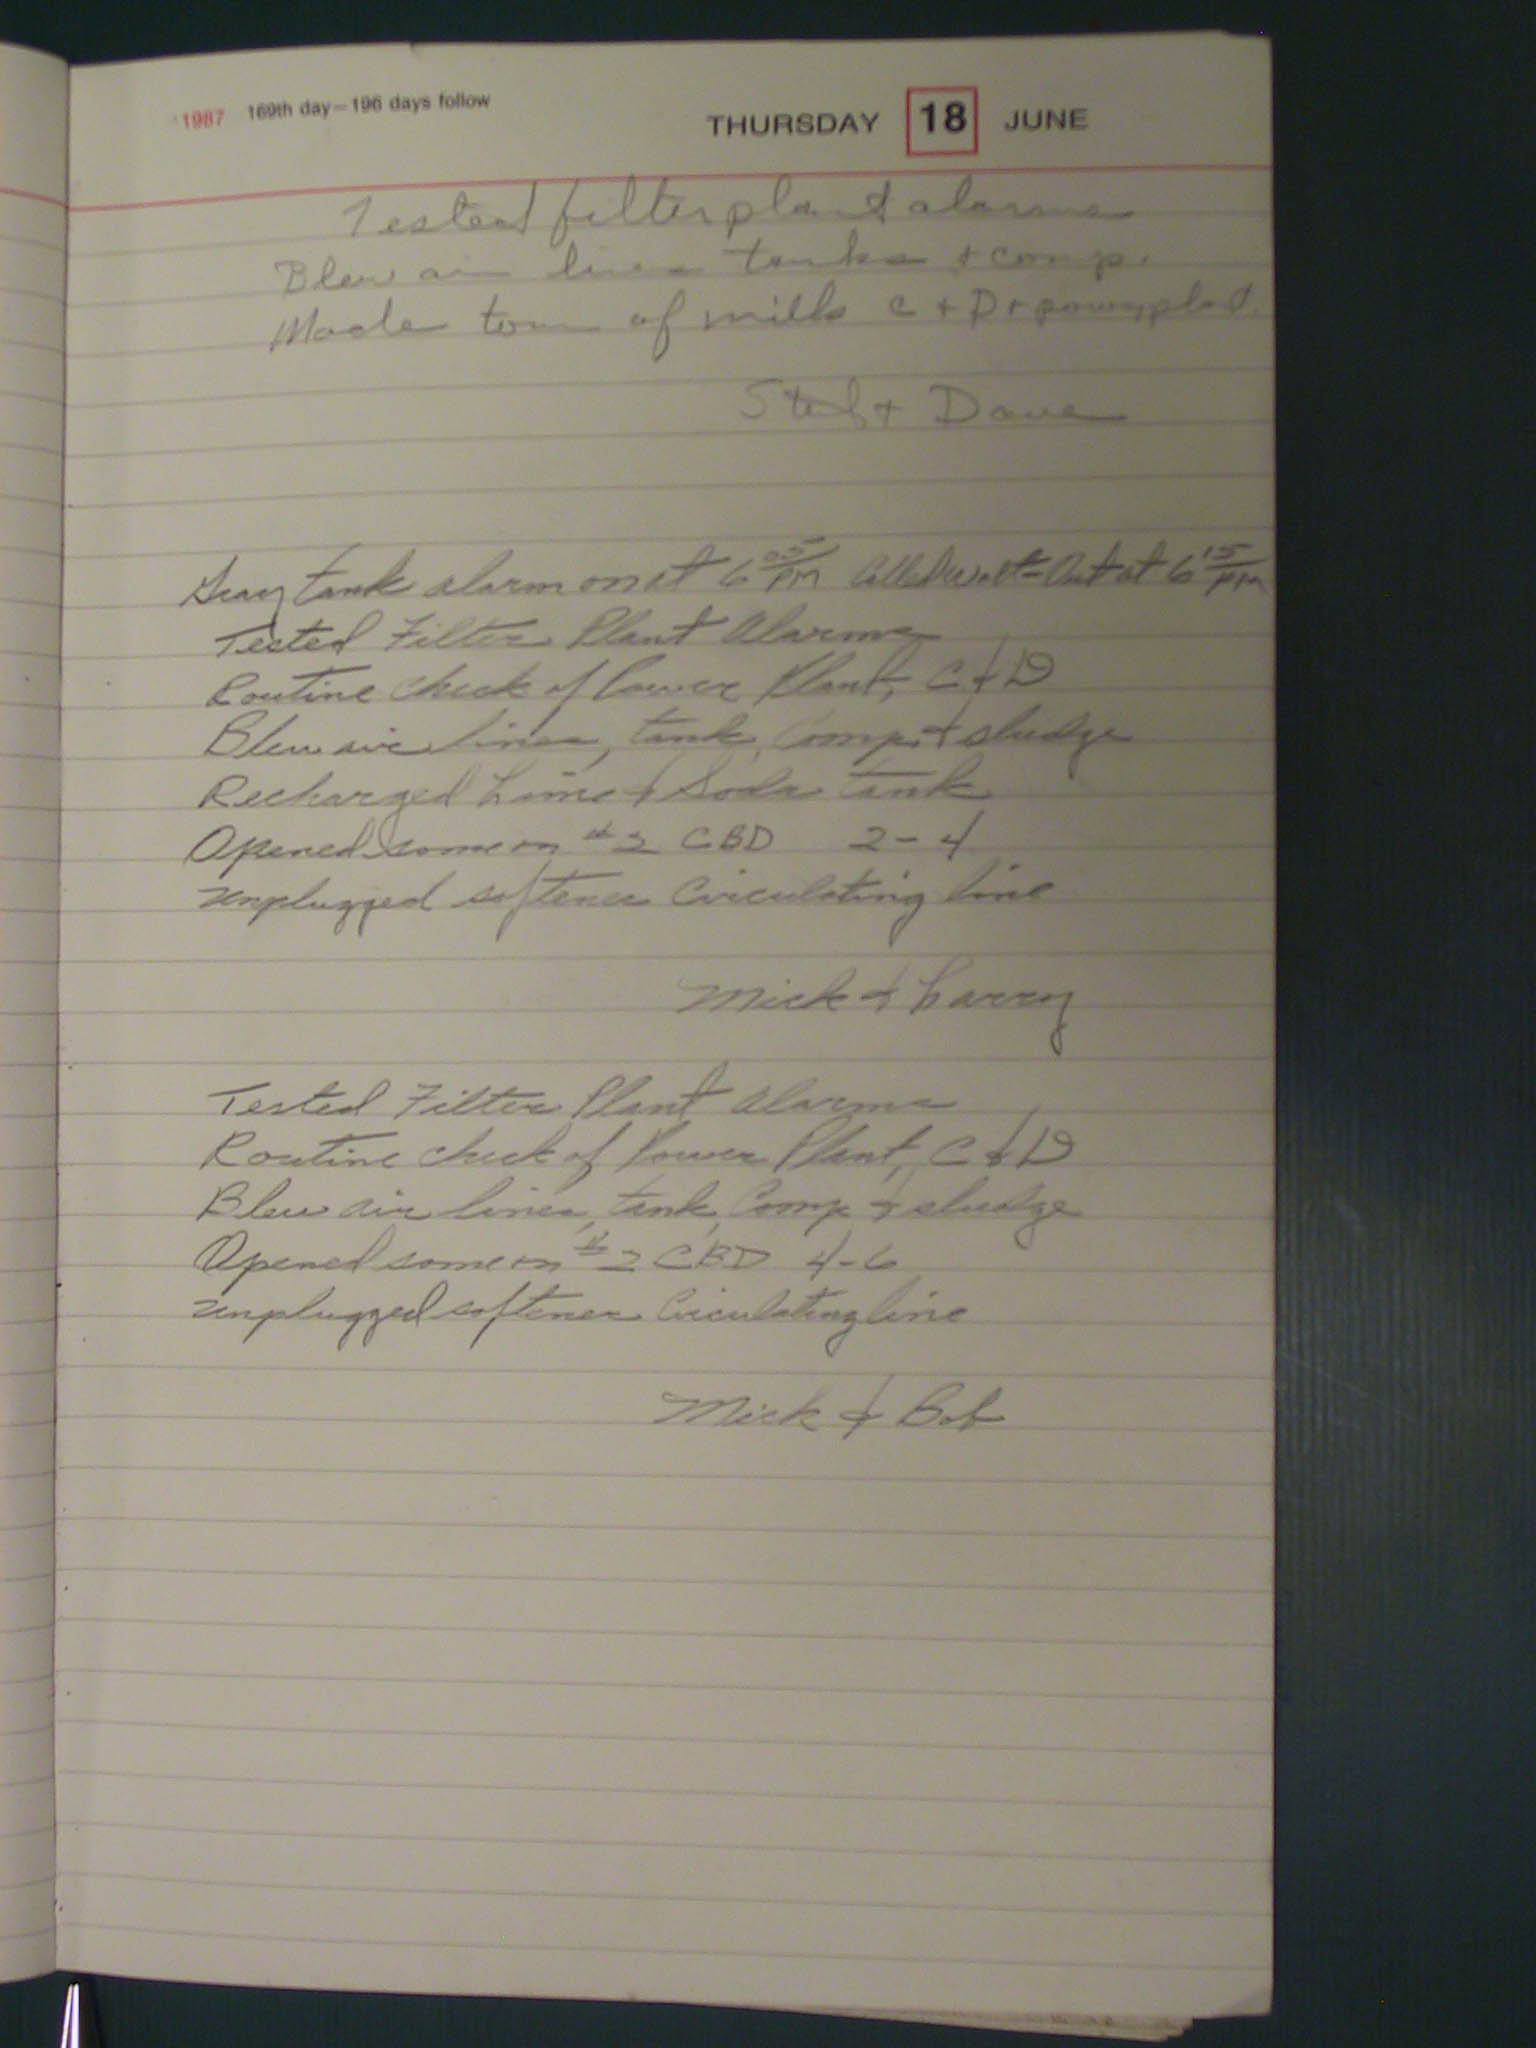 1987 169th day—196 days follow
THURSDAY 18 JUNE
Tested filter plant alarms
Blew air lines tanks + comp.
Made tour of mills C + D + power plant.
+ Dave
Gray tank alarm on at 6 05 PM Called Walt-Out at 6 15 PM
Tested Filter Plant Alarms
Routine check of Power Plant, C & D
Blew air lines, tank, Comp. & sludge
Recharged Lime & Soda tank
Opened some on #2 CBD 2-4
Unplugged softener Circulating line
Mick & Larry
Tested Filter Plant Alarms
Routine check of Power Plant, C & D
Blew air lines, tank, Comp & sludge
Opened some on #2 CBD 4-6
Unplugged softener Circulating line
Mick & Bob